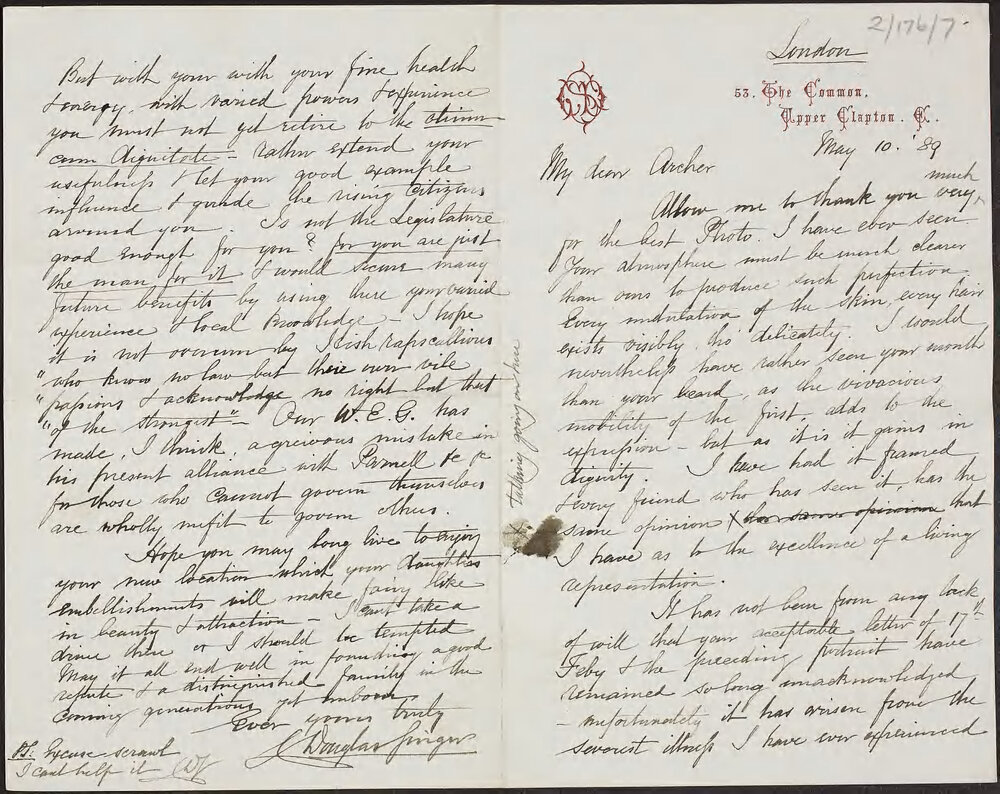 2/176/7.
London
53. The Common,
Upper Clapton. E.
May 10. '89
My dear Archer
Allow me to thank you very much
for the best Photo. I have ever seen
Your atmosphere must be much clearer
than ours to produce such perfection.
Every undulation of the skin, every hair
exists visibly, tho' delicately. I would
nevertheless have rather seen your mouth
than your beard, as the vivacious
mobility of the first, adds to the
expression – but as it is it gains in
dignity. I have had it framed
& every friend who has seen it, has the
same opinion that
I have as to the excellence of a living
representation.
It has not been from any lack
of will that your acceptable letter of 17th
Feby & the preceding portrait have
remained so long unacknowledged
– unfortunately it has arisen from the
severest illness I have ever experienced
But with your with your fine health
& energy, with varied powers & experience
you must not yet retire to the otium
cum dignitate – rather extend your
usefulness & let your good example
influence & guide the rising citizens
around you. Is not the Legislature
good enough for you? for you are just
the man for it & would secure many
future benefits by using there your varied
experience & local knowledge. I hope
it is not overrun by Irish rapscallions
"who know no law but their own vile
"passions & acknowledge no right but that
"of the strongest" – Our W. E. G. has
made, I think, a grievous mistake in
his present alliance with Parnell &c &c
for those who cannot govern themselves
are wholly unfit to govern others.
Hope you may long live to enjoy
your new location which your daughters
embellishments will make fairy like
in beauty & attraction – I can't take a
drive there or I should be tempted
May it all end well in founding a good
repute & a distinguished family in the
coming generations yet unborn
Ever yours truly
Douglas Singer
PS: Excuse scrawl
I can't help it